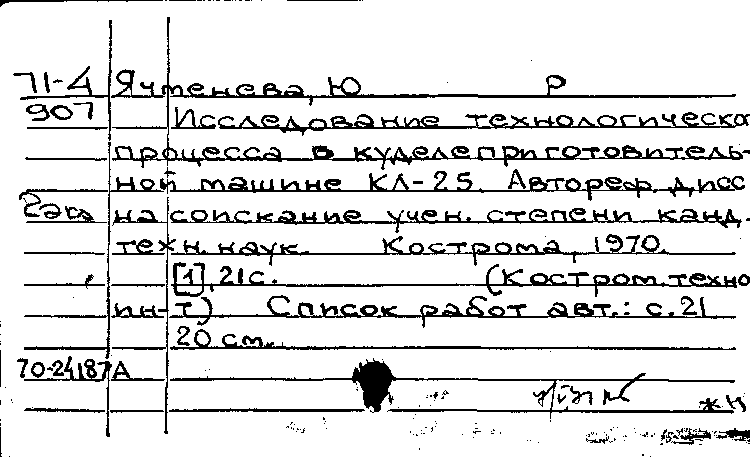 71-4 Ячменева, Ю Р
907 Исследование технологическо
процесса в куделеприготовитель-
ной машине КЛ-25. Автореф. дисс
на соискание учен. степени канд.
техн. наук. Кострома, 1970.
[1], 21с. (Костром. техно
ин-т) Список работ авт.: с. 21
20 см.
70-24187А
жн